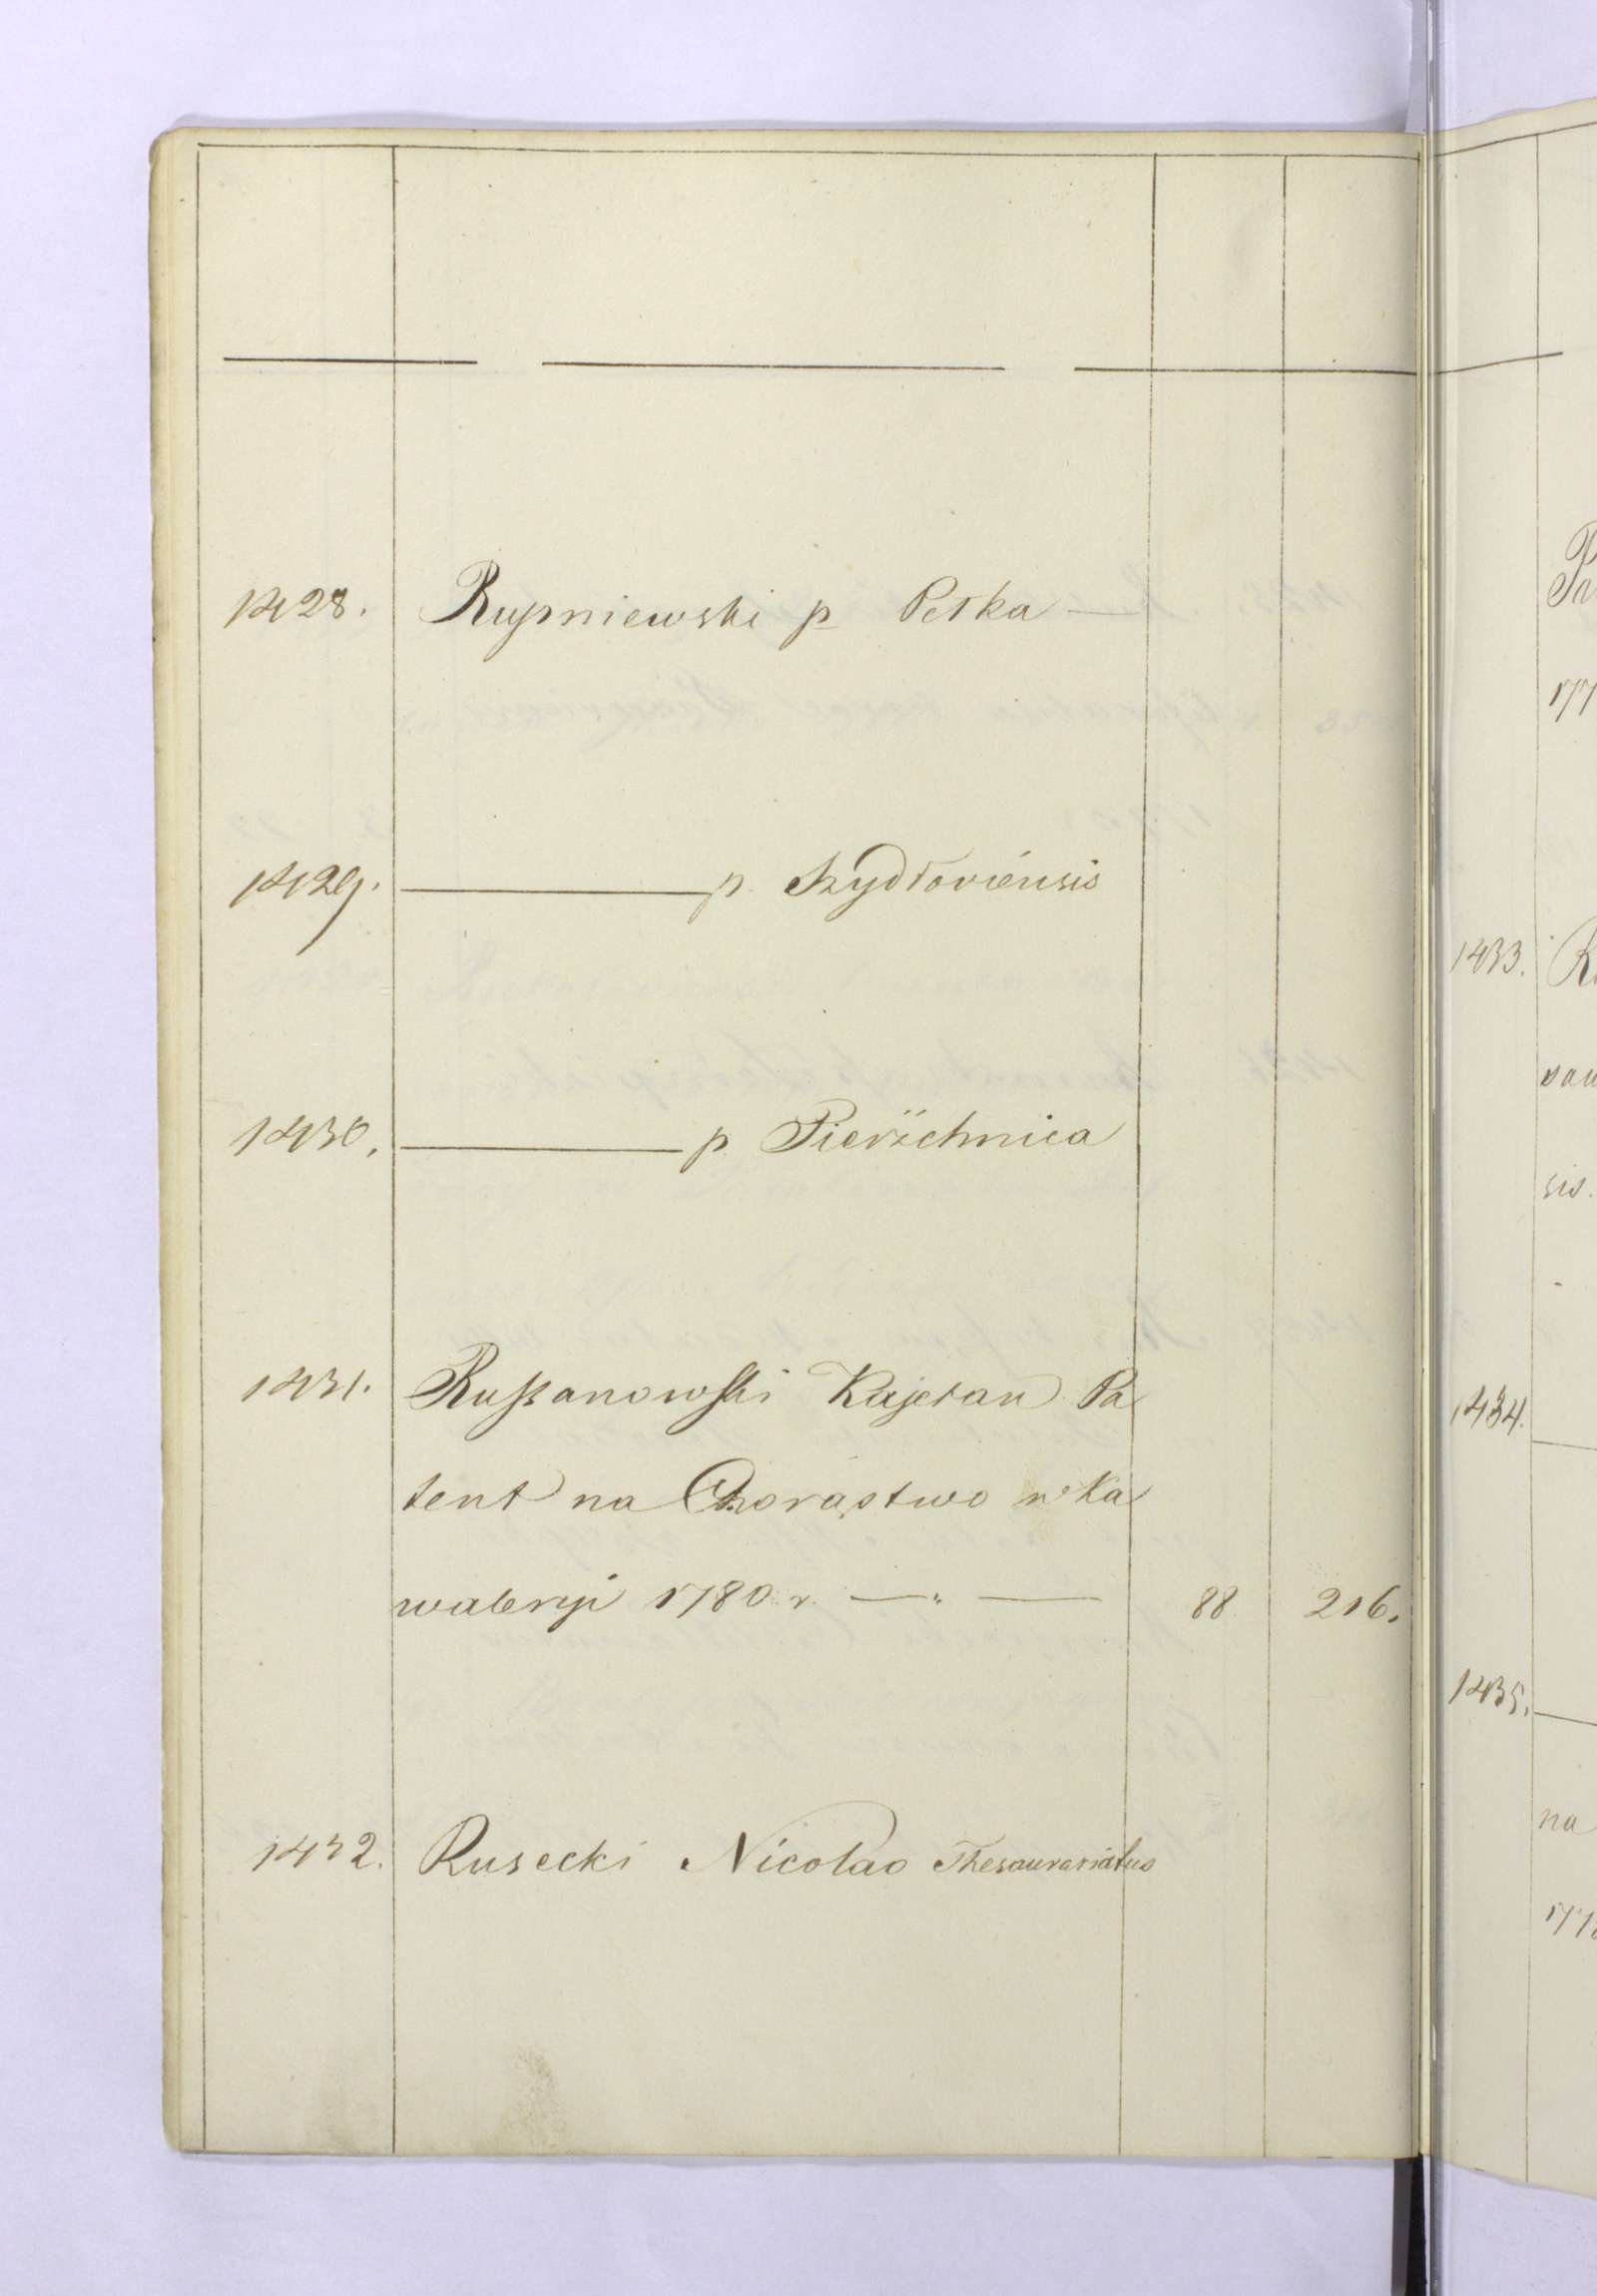 1428. Rupniewski p Petka —
1429. ——— p. Szydłoviensis
1430. ——— p Pierzchnica
1431. Russanowski Kajetan Pa
tent na Chorąstwo w Ka
waleryi 1780 r. —"— 88 216.
1432. Rusecki Nicolao Thesaurariatus
Pa
177
1433. R
van
sis.
1434.
1435.
na
177